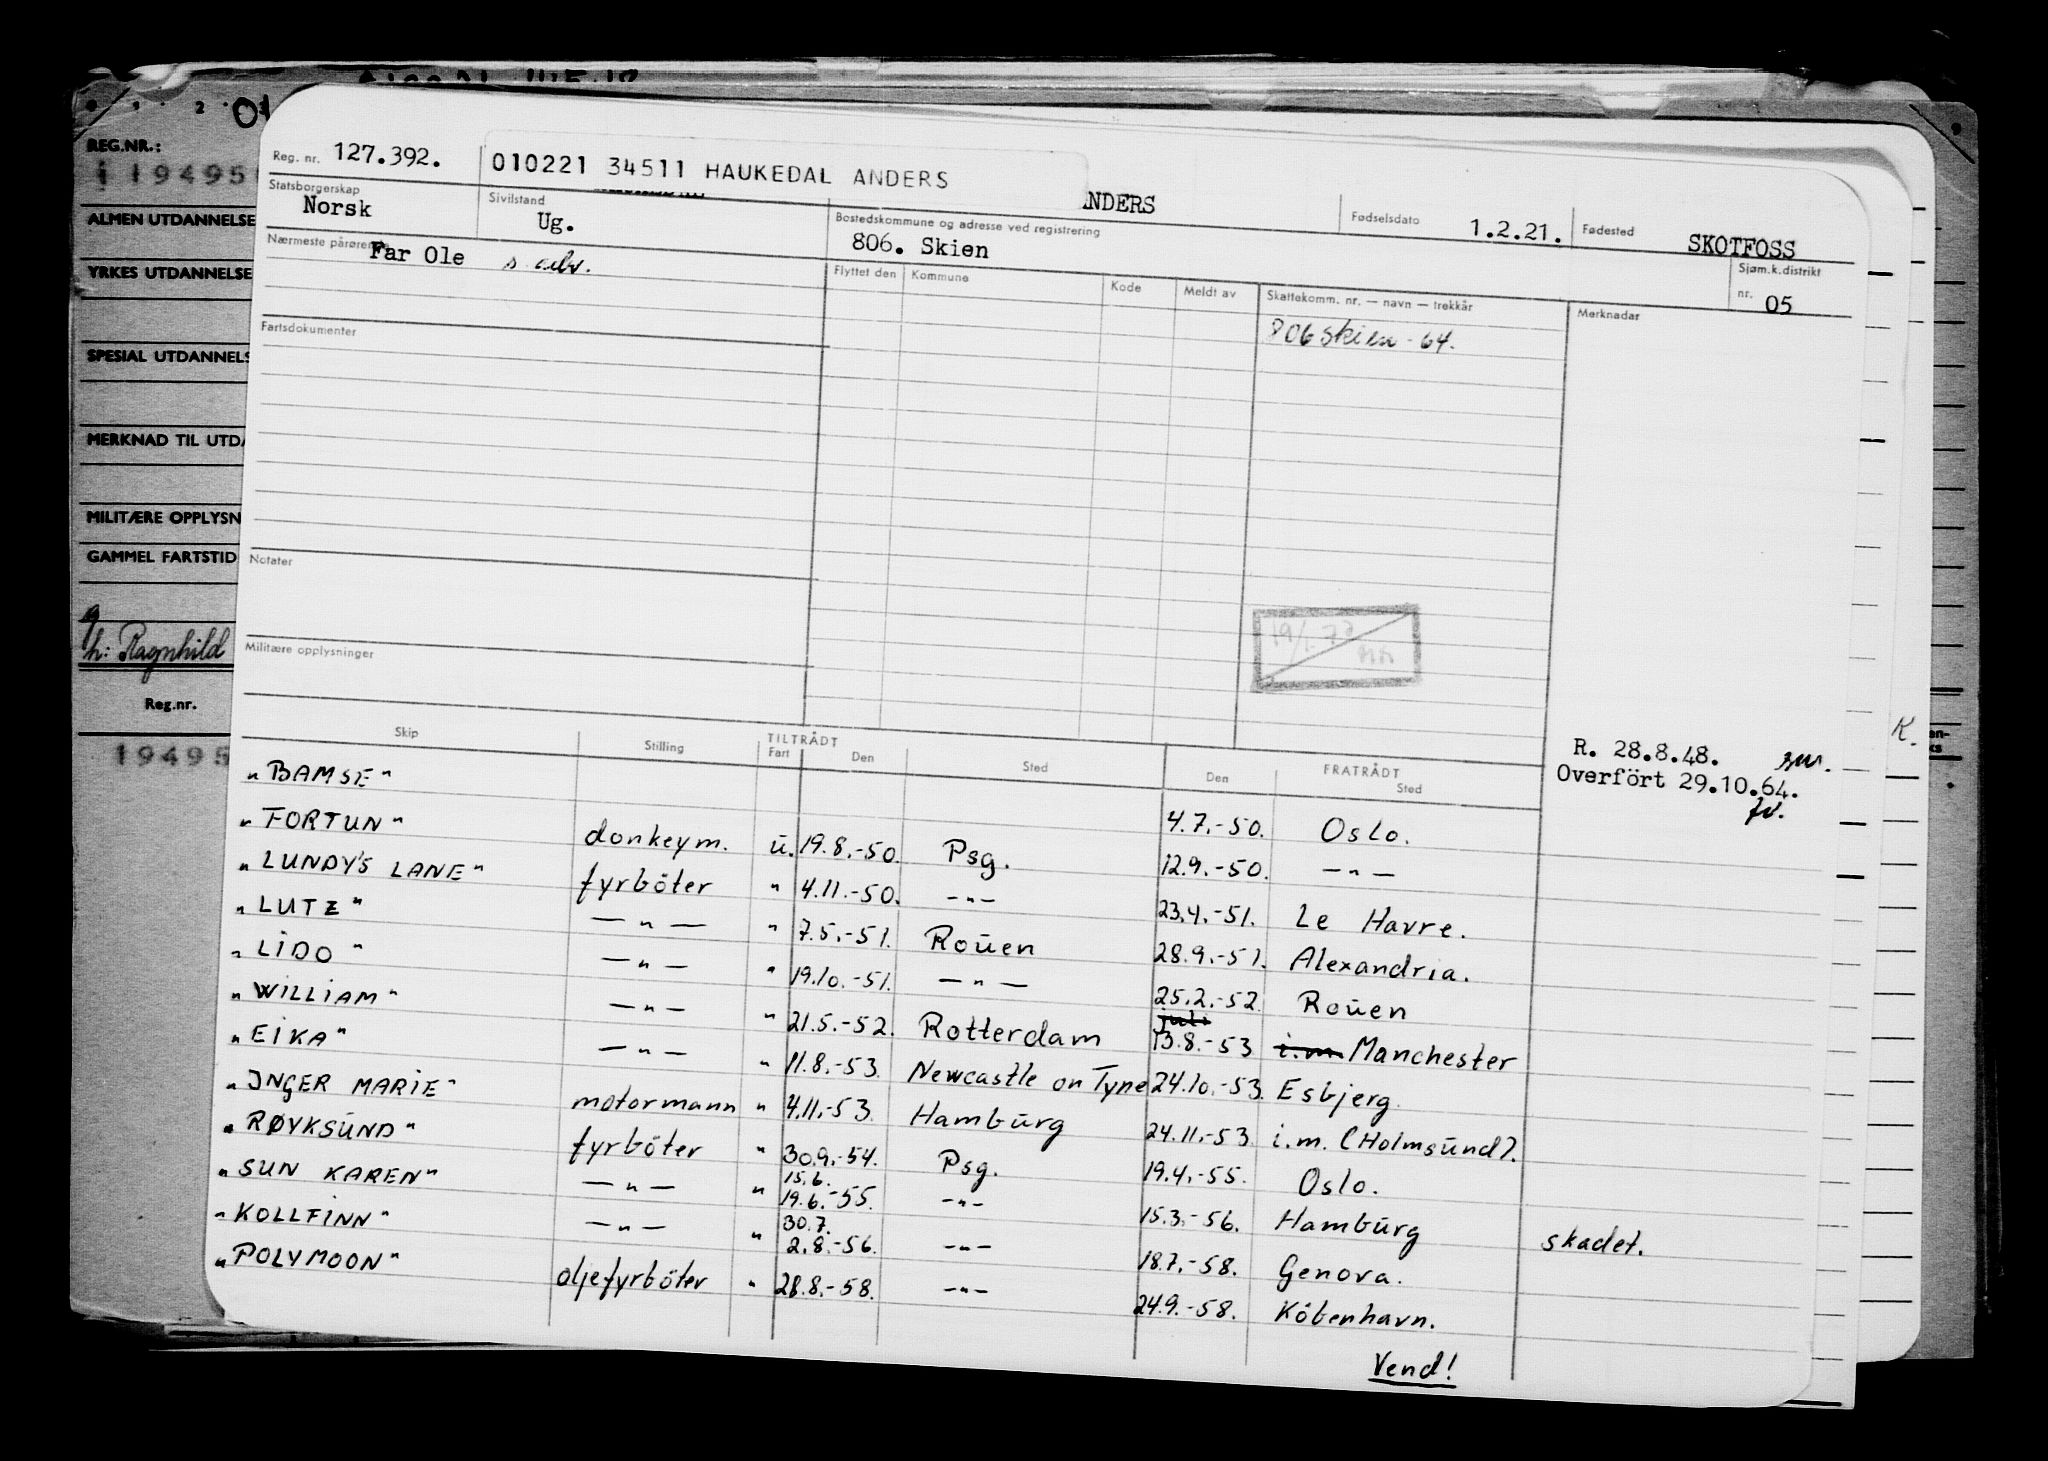 REG.NR.:
19495
ALMEN UTDANNELSE
YRKES UTDANNELSE
SPESIAL UTDANNELS
MERKNAD TIL UTDA
MILITÆRE OPPLYSN
GAMMEL FARTSTID
h: Ragnhild
Reg.nr.
19495
Reg. nr. 127.392. 010221 34511 HAUKEDAL ANDERS
NDERS Fødselsdato 1.2.21. Fødested SKOTFOSS
Statsborgerskap Norsk Sivilstand Ug. Bostedskommune og adresse ved registrering 806. Skien Sjøm.k.distrikt nr. 05
Nærmeste pårørende Far Ole s adr.
Flyttet den Kommune Kode Meldt av Skattekomm. nr. — navn — trekkår Merknadar
806 Skien - 64.
Fartsdokumenter
Notater
19/1.72
Militære opplysninger
R. 28.8.48.
Overfört 29.10.64.
Skip Stilling TILTRÅDT Fart Den Sted FRATRÅDT Den Sted
"BAMSE" 4.7.-50. Oslo.
"FORTUN" donkeym. u. 19.8.-50. Psg. 12.9.-50. —"—
"LUNDY'S LANE" fyrböter " 4.11.-50. -"- 23.4.-51. Le Havre.
"LUTZ" —"— " 7.5.-51. Rouen 28.9.-51. Alexandria.
"LIDO" —"— " 19.10.-51. —"— 25.2.-52. Rouen
juli
"WILLIAM" —"— " 21.5.-52. Rotterdam 13.8.-53 i.m. Manchester
"EIKA" —"— " 11.8.-53. Newcastle on Tyne 24.10.-53. Esbjerg.
"INGER MARIE" motormann " 4.11.-53. Hamburg 24.11.-53. i.m. (Holmsund).
"RØYKSUND" fyrböter " 30.9.-54. Psg. 19.4.-55. Oslo.
15.6.
"SUN KAREN" —"— " 19.6.-55. -"- 15.3.-56. Hamburg skadet.
30.7.
"KOLLFINN" —"— " 2.8.-56. -"- 18.7.-58. Genova.
"POLYMOON" oljefyrböter " 28.8.-58. -"- 24.9.-58. Köbenhavn.
Vend!
K.